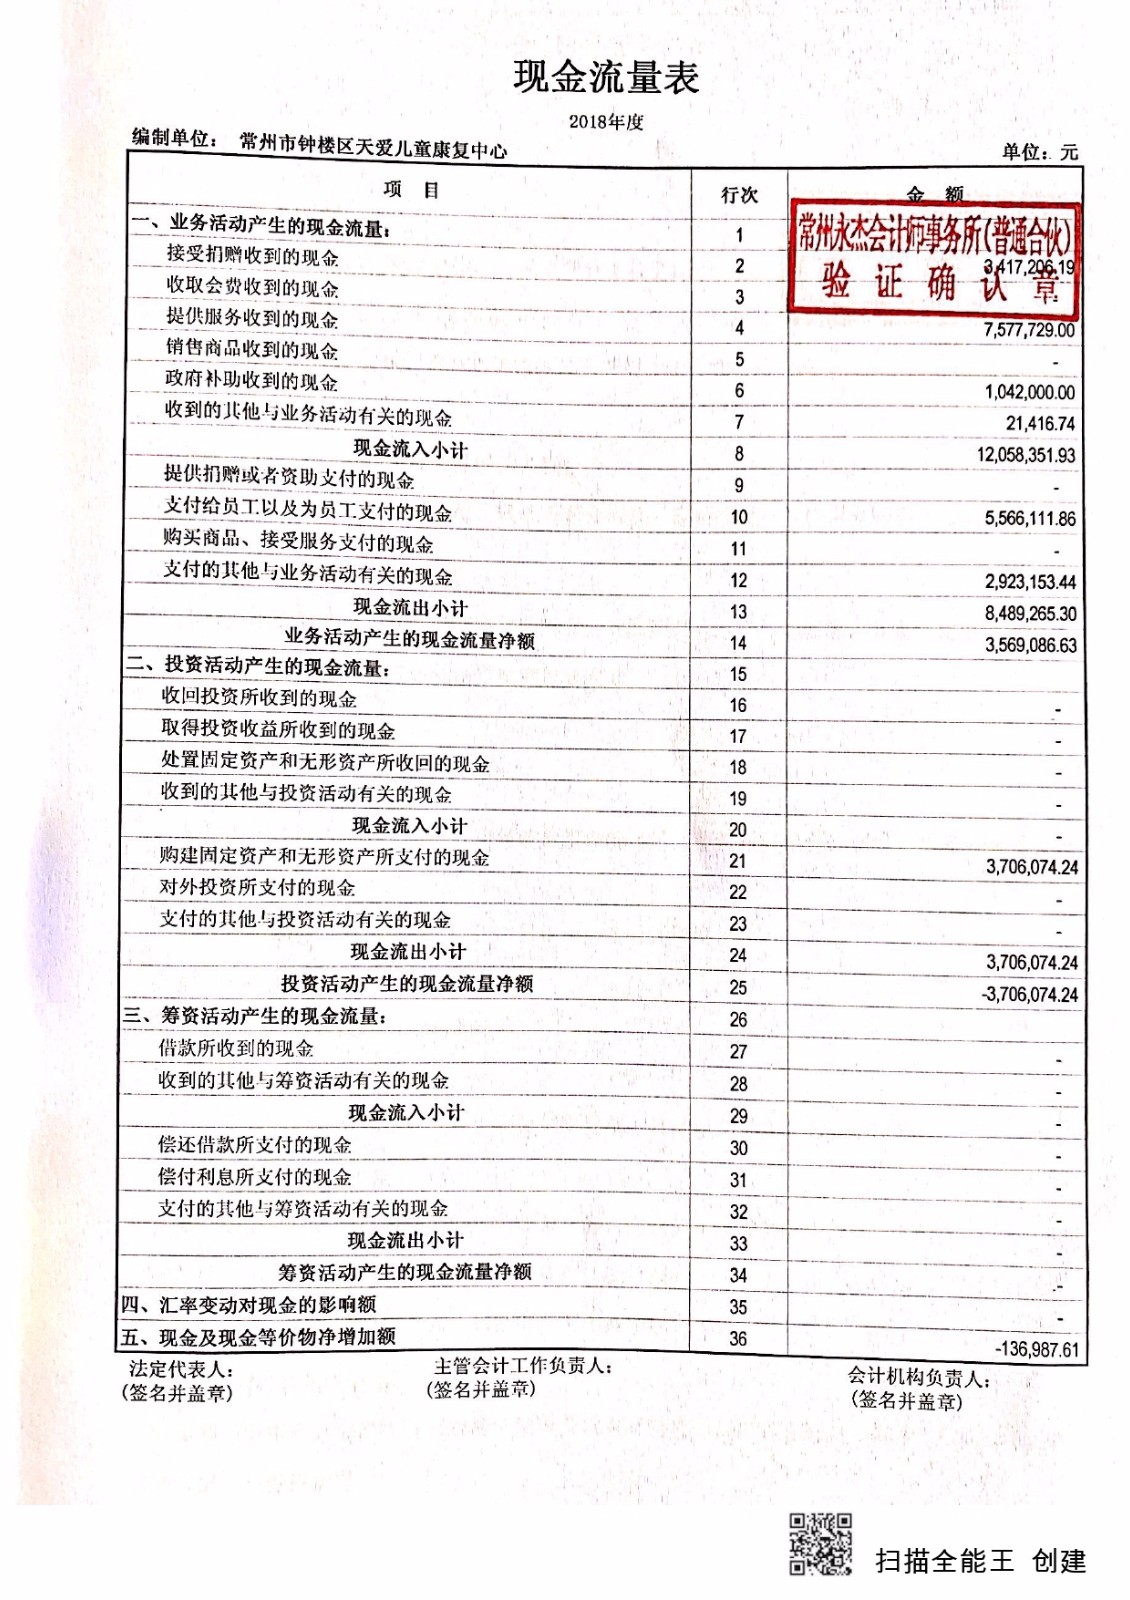 现金流量表
2018年度
编制单位： 常州市钟楼区天爱儿童康复中心 单位：元
项 目 行次 金 额
常州永杰会计师事务所(普通合伙)
验证确认章
一、业务活动产生的现金流量： 1
接受捐赠收到的现金 2 3,417,206.19
收取会费收到的现金 3 -
提供服务收到的现金 4 7,577,729.00
销售商品收到的现金 5 -
政府补助收到的现金 6 1,042,000.00
收到的其他与业务活动有关的现金 7 21,416.74
现金流入小计 8 12,058,351.93
提供捐赠或者资助支付的现金 9 -
支付给员工以及为员工支付的现金 10 5,566,111.86
购买商品、接受服务支付的现金 11 -
支付的其他与业务活动有关的现金 12 2,923,153.44
现金流出小计 13 8,489,265.30
业务活动产生的现金流量净额 14 3,569,086.63
二、投资活动产生的现金流量： 15
收回投资所收到的现金 16 -
取得投资收益所收到的现金 17 -
处置固定资产和无形资产所收回的现金 18 -
收到的其他与投资活动有关的现金 19 -
现金流入小计 20 -
购建固定资产和无形资产所支付的现金 21 3,706,074.24
对外投资所支付的现金 22 -
支付的其他与投资活动有关的现金 23 -
现金流出小计 24 3,706,074.24
投资活动产生的现金流量净额 25 -3,706,074.24
三、筹资活动产生的现金流量： 26
借款所收到的现金 27 -
收到的其他与筹资活动有关的现金 28 -
现金流入小计 29 -
偿还借款所支付的现金 30 -
偿付利息所支付的现金 31 -
支付的其他与筹资活动有关的现金 32 -
现金流出小计 33 -
筹资活动产生的现金流量净额 34 -
四、汇率变动对现金的影响额 35 -
五、现金及现金等价物净增加额 36 -136,987.61
法定代表人： 主管会计工作负责人： 会计机构负责人：
(签名并盖章) (签名并盖章) (签名并盖章)
扫描全能王 创建